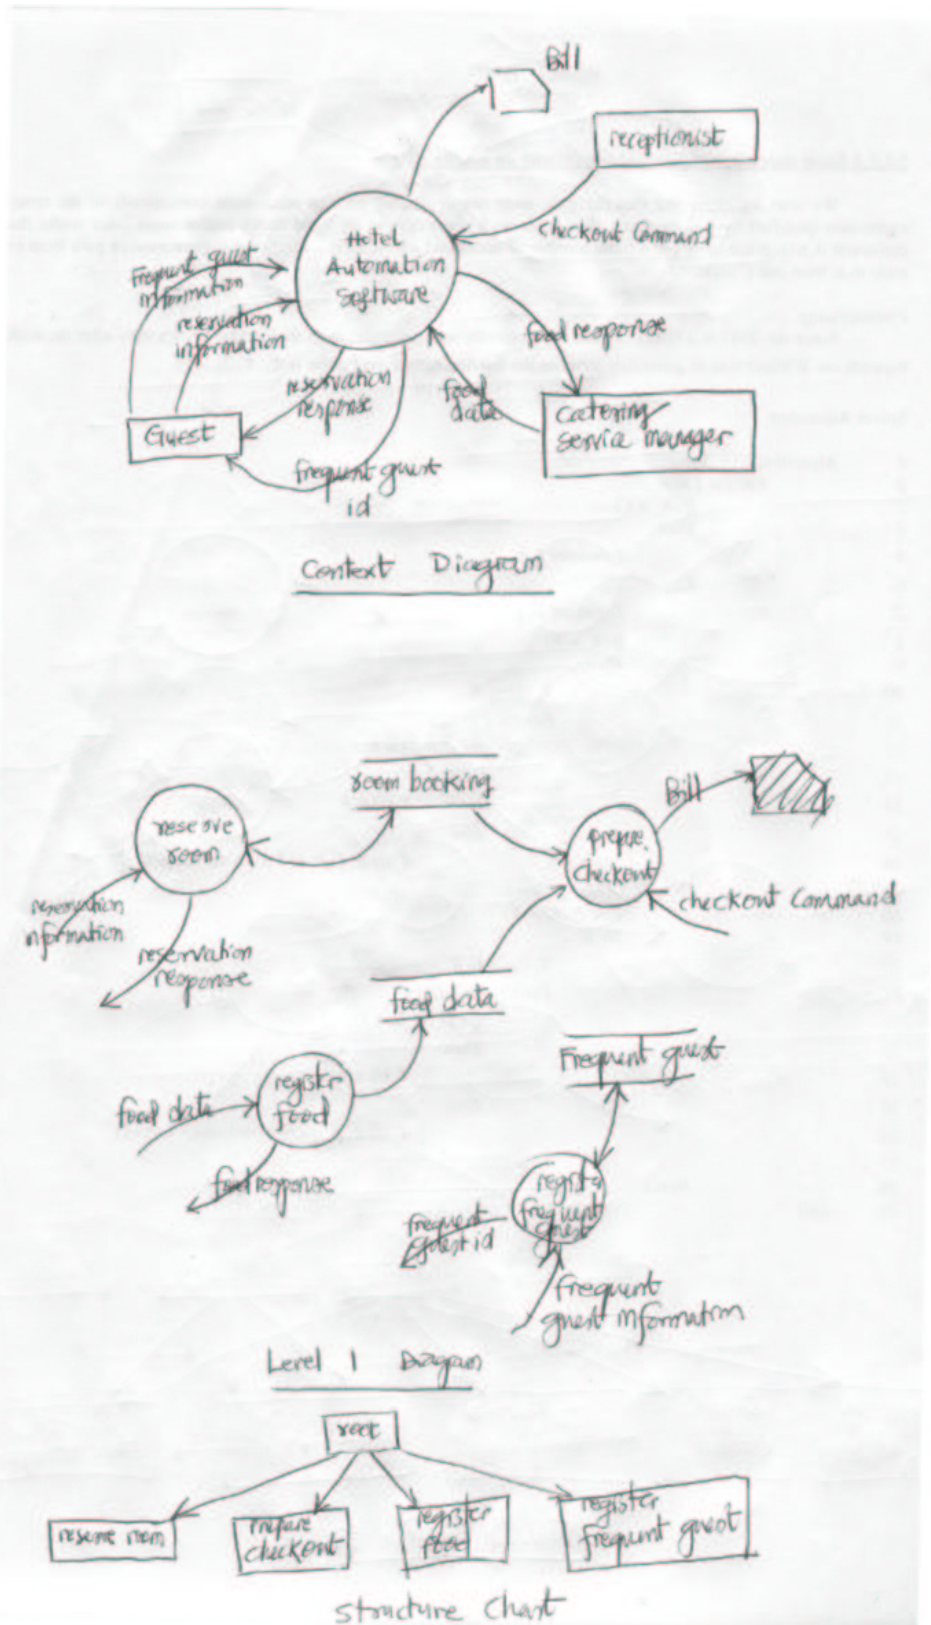 Bill
receptionist
checkout Command
Hotel
Automation
Software
Frequent guest
information
reservation
information
food response
reservation
response
food
data
Guest
Catering
Service manager
frequent guest
id
Context Diagram
room booking
Bill
reserve
room
prepare
checkout
reservation
information
checkout Command
reservation
response
food data
Frequent guest
register
food
food data
food response
register
frequent
guest
frequent
guest id
frequent
guest information
Level 1 Diagram
root
reserve room
prepare
checkout
register
food
register
frequent guest
Structure Chart